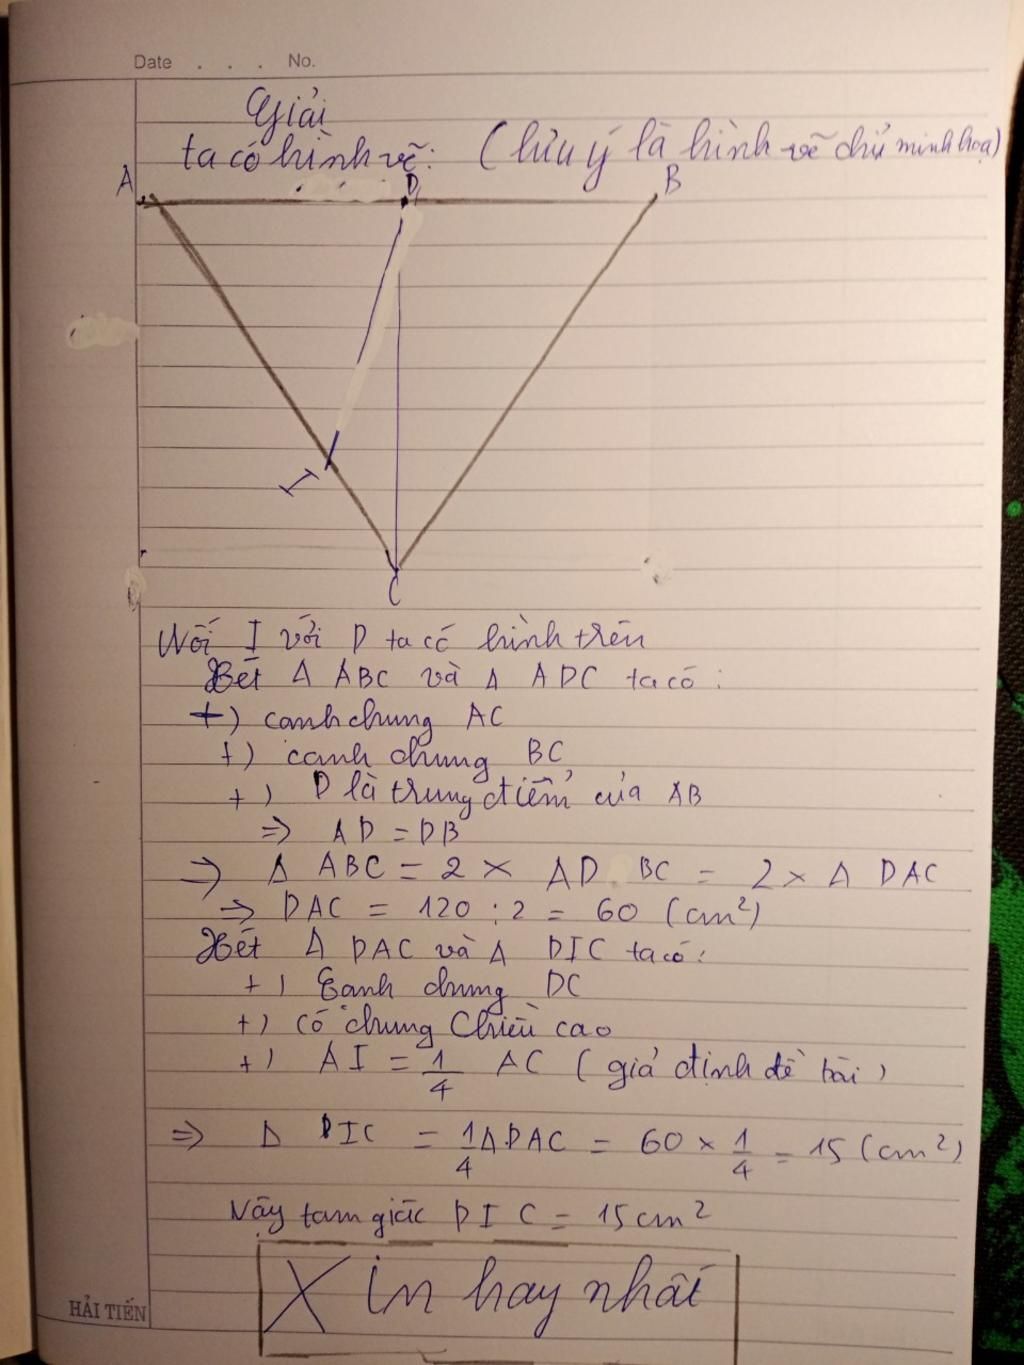 Date . . . No.
Giải
ta có hình vẽ: (lưu ý là hình vẽ chỉ minh hoạ)
A D B
I
C
Nối I với D ta có hình trên
Xét Δ ABC và Δ ADC ta có:
+) cạnh chung AC
+) cạnh chung BC
+) D là trung điểm của AB
=> AD = DB
=> Δ ABC = 2 × AD BC = 2 × Δ DAC
=> DAC = 120 : 2 = 60 (cm²)
Xét Δ DAC và Δ DIC ta có:
+) Cạnh chung DC
+) có chung Chiều cao
+) AI = 1/4 AC (giả định đề bài)
=> Δ DIC = 1/4 Δ DAC = 60 × 1/4 = 15 (cm²)
Vậy tam giác DIC = 15cm²
Xin hay nhất
HẢI TIẾN